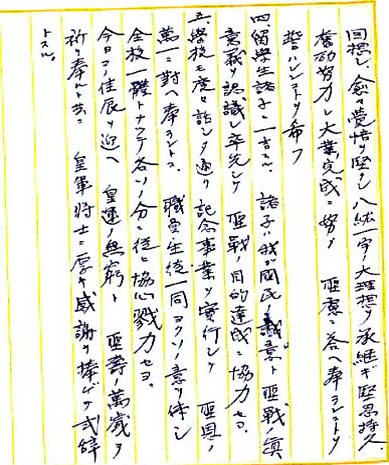 回想シ、愈々覺悟ヲ堅クシ八紘一宇ノ大理想ヲ承継ギ堅忍持久
奮励努力シ大業完成ニ努メ 聖慮ニ答ヘ奉ランコトヲ
誓ハンコトヲ希フ
四、留學生諸子ニ一言ス。 諸子ハ我ガ國民ノ誠意ト聖戰ノ眞
意義ヲ認識シ率先シテ 聖戰ノ目的達成ニ協力セヨ。
五、學校モ度々話シタ通リ記念事業ヲ實行シテ 聖恩ノ
萬一ニ對ヘ奉ラントス。 職員生徒一同ヨクソノ意ヲ体シ
全校一體トナッテ各ソノ分ニ從ヒ協心戮力セヨ。
今日コノ佳辰ヲ迎ヘ 皇運ノ無窮ト 聖壽ノ萬歳ヲ
祈リ奉ルト共ニ 皇軍將士ニ厚キ感謝ヲ捧ゲテ式辞
トスル。